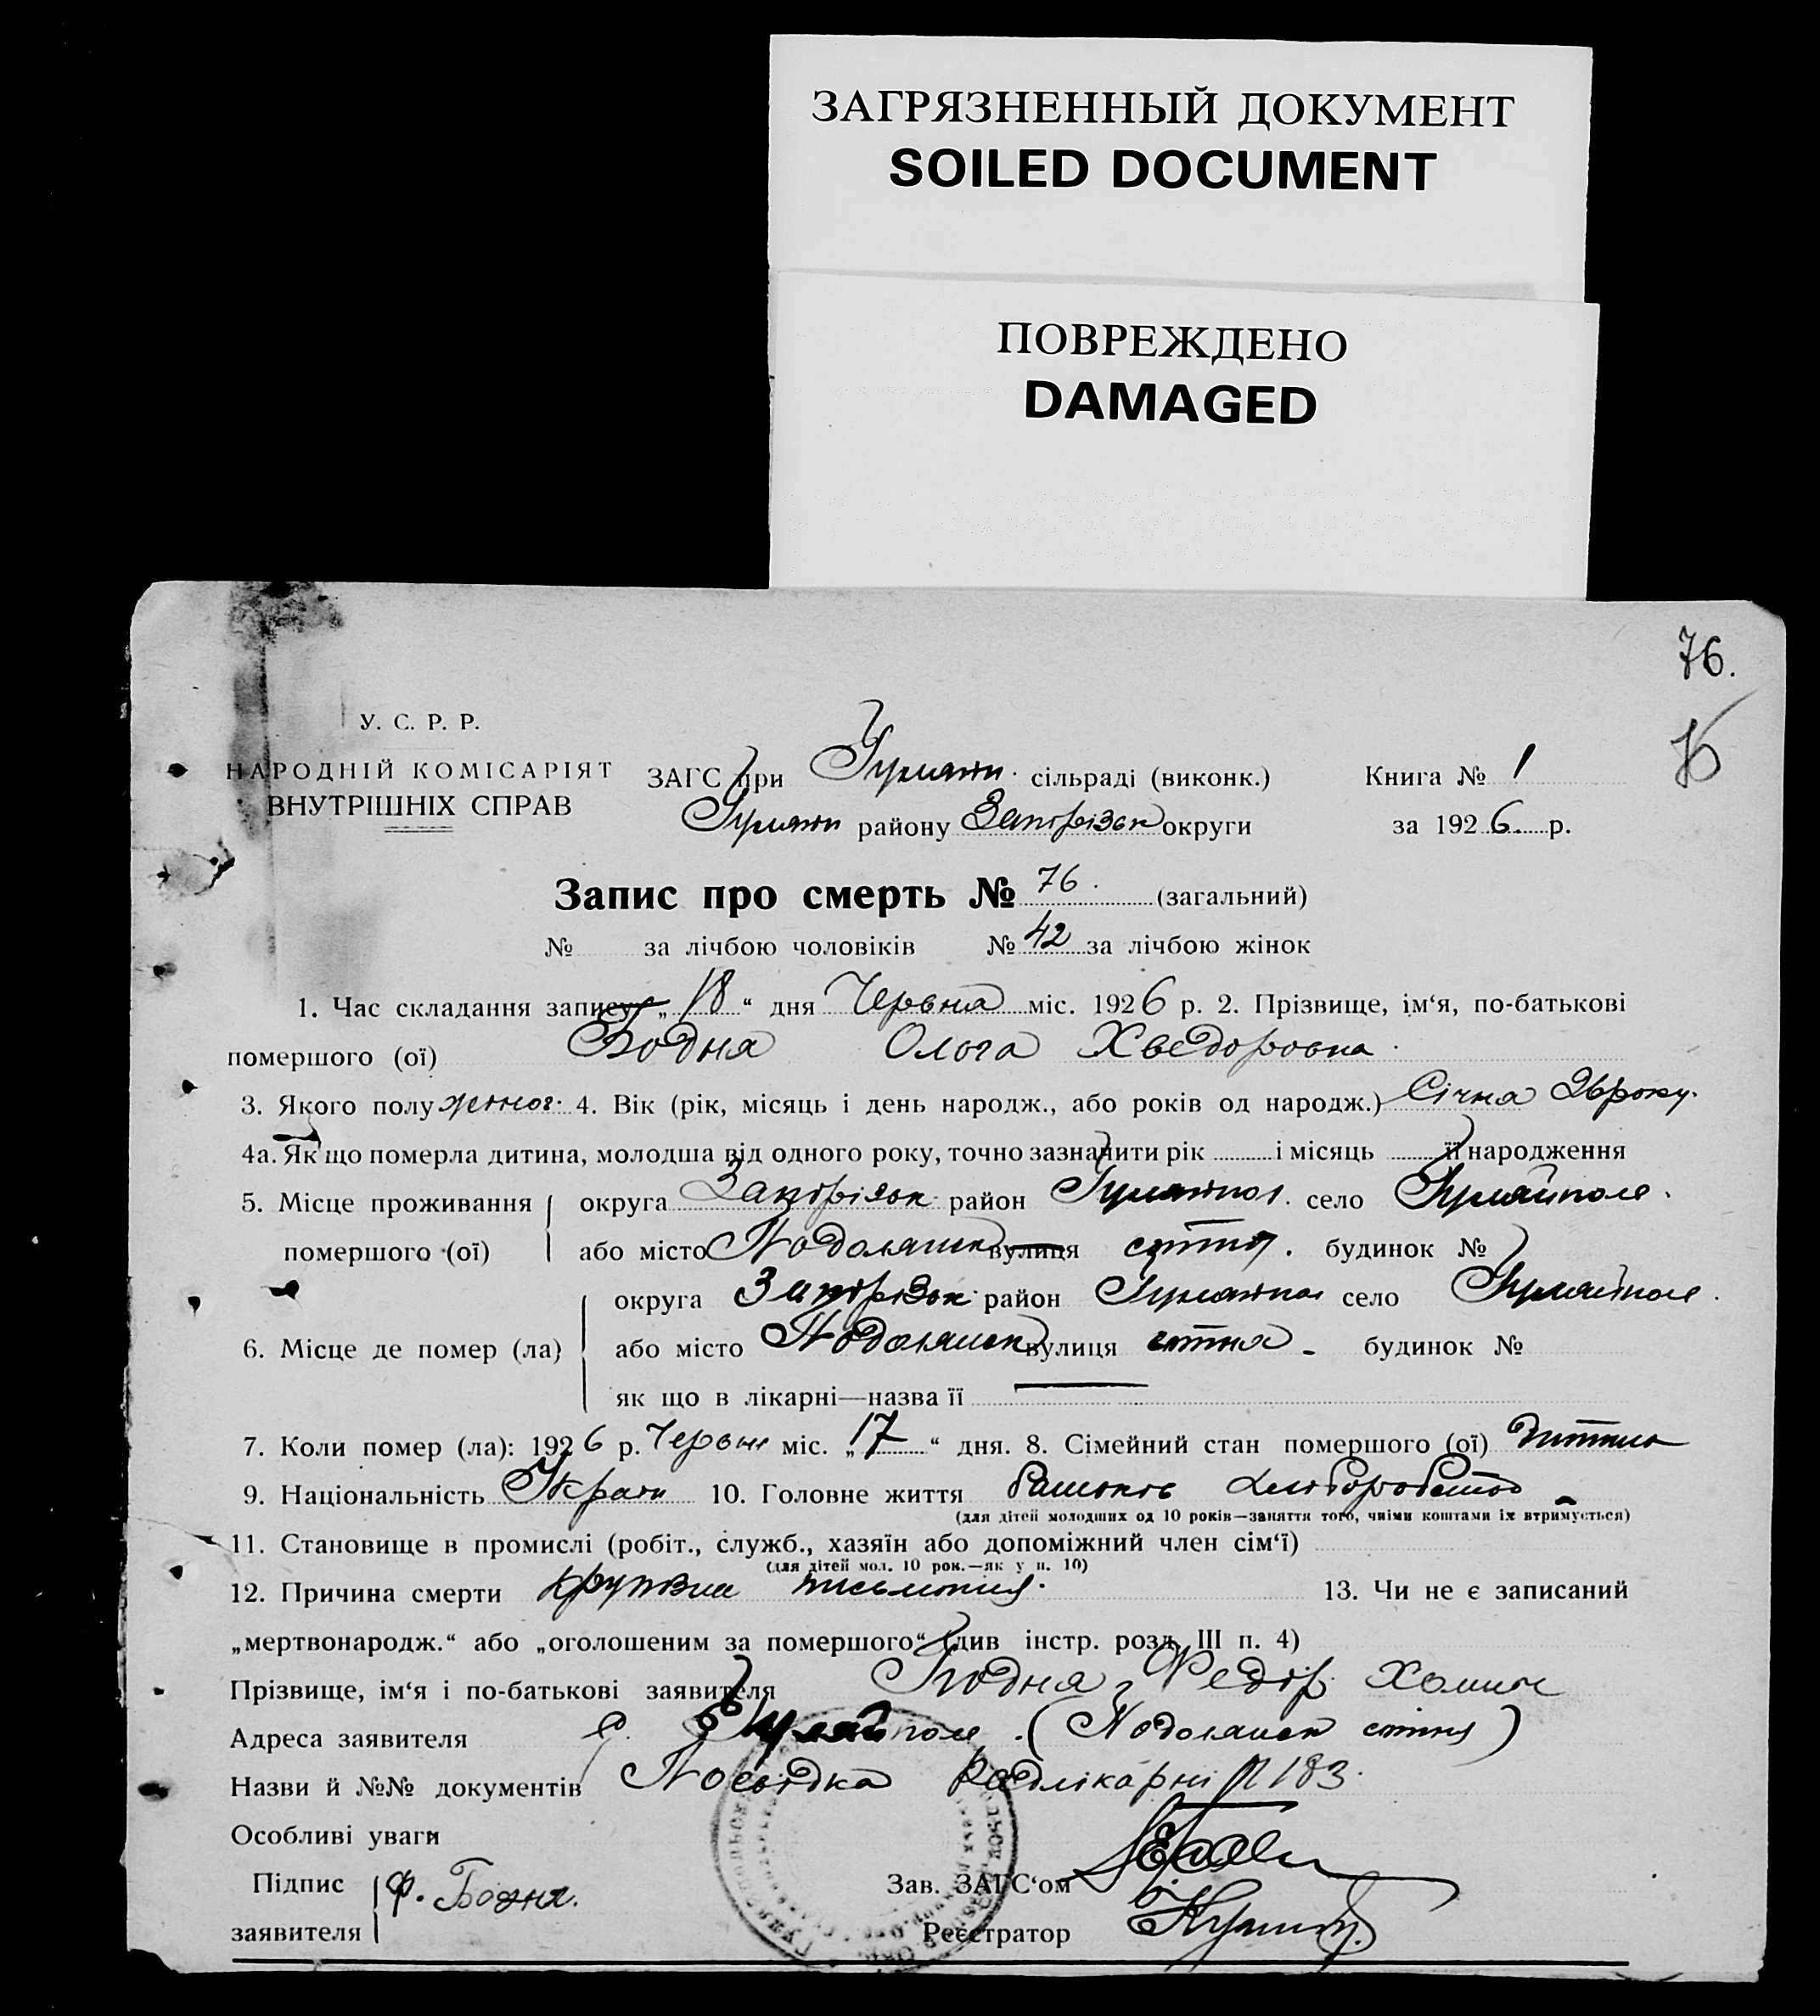 ЗАГРЯЗНЕННЫЙ ДОКУМЕНТ
SOILED DOCUMENT
ПОВРЕЖДЕНО
DAMAGED
76.
У. С. Р. Р.
НАРОДНІЙ КОМІСАРІЯТ
ВНУТРІШНІХ СПРАВ
ЗАГС при Гуляйп. сільраді (виконк.) Книга № 1
Гуляйп району Запорізьк округи за 1926. р.
Запис про смерть № 76. (загальний)
№ за лічбою чоловіків № 42 за лічбою жінок
1. Час складання запису „18“ дня Червня міс. 1926 р. 2. Прізвище, ім‘я, по-батькові
помершого (ої) Бодня Ольга Хведоровна.
3. Якого полу жіноч. 4. Вік (рік, місяць і день народж., або років од народж.) Січня 26 року.
4а. Як що померла дитина, молодша від одного року, точно зазначити рік і місяць її народження
5. Місце проживання округа Запорізьк. район Гуляйпол. село Гуляйполе.
помершого (ої) або місто Подолянськ вулиця сотня. будинок №
округа Запорізьк. район Гуляйпол село Гуляйполе.
6. Місце де помер (ла) або місто Подолянськ вулиця сотня - будинок №
як що в лікарні—назва її
7. Коли помер (ла): 1926 р. Червн міс. „17“ дня. 8. Сімейний стан помершого (ої) дитина
9. Національність Україн 10. Головне життя батьків хлібороб
(для дітей молодших од 10 років—заняття того, чиїми коштами їх втримується)
11. Становище в промислі (робіт., служб., хазяїн або допоміжний член сім‘ї)
(для дітей мол. 10 рок.—як у п. 10)
12. Причина смерти крупозна 13. Чи не є записаний
„мертвонародж.“ або „оголошеним за помершого“ (див інстр. розд. III п. 4)
Прізвище, ім‘я і по-батькові заявителя Бодня Федір Хомич
Адреса заявителя с. Гуляйполе. (Подолянськ сотня)
Назви й №№ документів Посвідка Радлікарні № 183.
Особливі уваги
Підпис Ф. Бодня. Зав. ЗАГС‘ом
заявителя Реєстратор